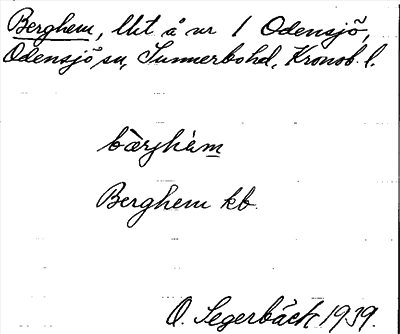 Berghem, lht å nr 1 Odensjö,
Odensjö sn, Sunnerbo hd, Kronob. l.
bæ̀rjhèm
Berghem kb.
O. Segerbäck 1939.